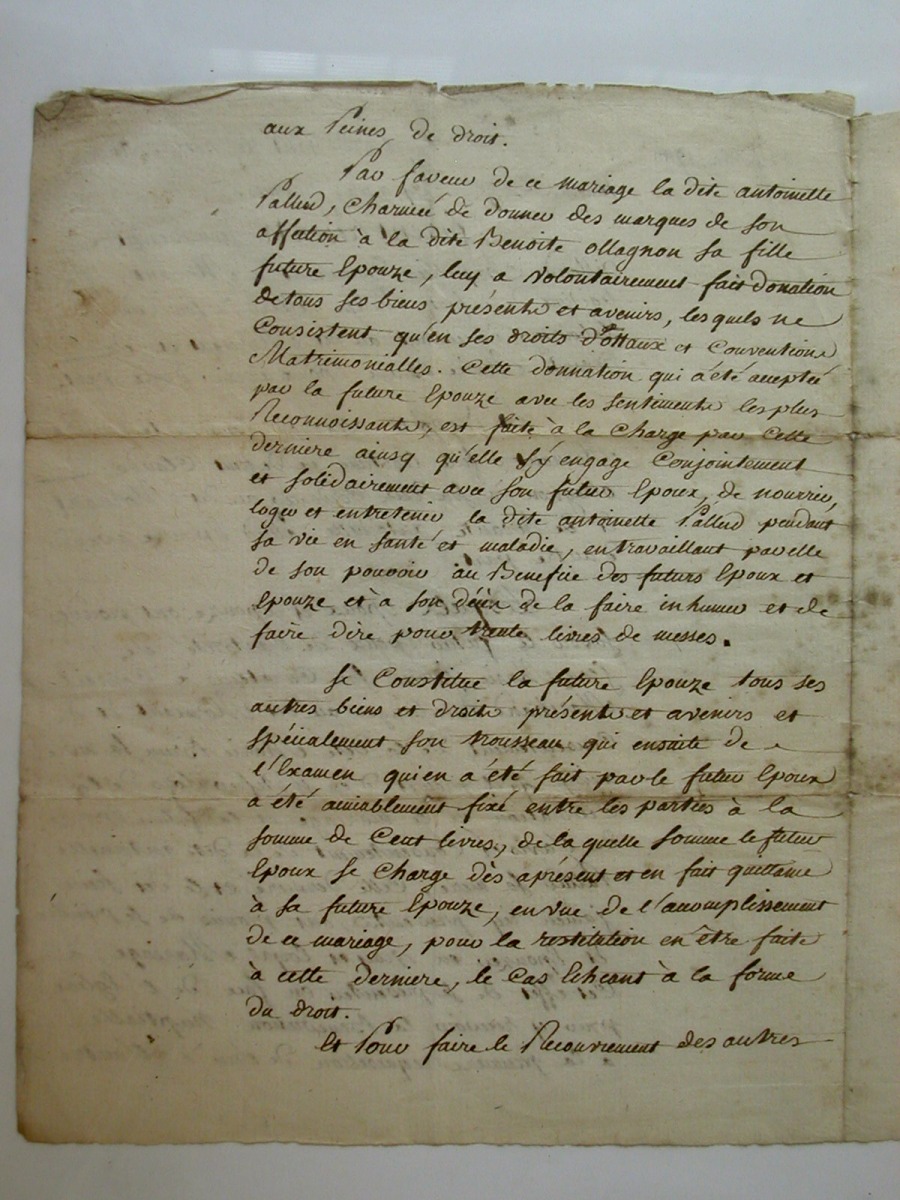 aux Peines de droit.
Par faveur de ce mariage la dite antoinette
Pallud, Charmée de donner des marques de son
affection à la dite Benoite ollagnon sa fille
future Epouze, luy a volontairement fait donation
de tous ses biens présents et avenirs, lesquels ne
Consistent qu'en ses droits d'ottaux et Conventions
Matrimonialles. Cette donnation qui a été acceptée
par la future Epouze avec les sentiments les plus
Reconnoissants, est faite à la Charge par Cette
derniere ainsy qu'elle s'y engage Conjointement
et solidairement avec son futur Epoux, de nourrir,
loger et entretenir la dite antoinette Pallud pendant
sa vie en santé et maladie, en travaillant par elle
de son pouvoir au Benefice des futurs Epoux et
Epouze et à son décès de la faire inhumer et de
faire dire pour trente livres de messes.
Se Constitue la future Epouze tous ses
autres biens et droits présents et avenirs et
spécialement son trousseau qui ensuite de
l'Examen qui en a été fait par le futur Epoux
a été amiablement fixé entre les parties à la
somme de Cent livres, de la quelle somme le futur
Epoux se Charge dès aprésent et en fait quittance
à sa future Epouze, en vue de l'accomplissement
de ce mariage, pour la restitution en être faite
à cette derniere, le Cas Echeant à la forme
du droit.
Et Pour faire le Recouvrement des autres